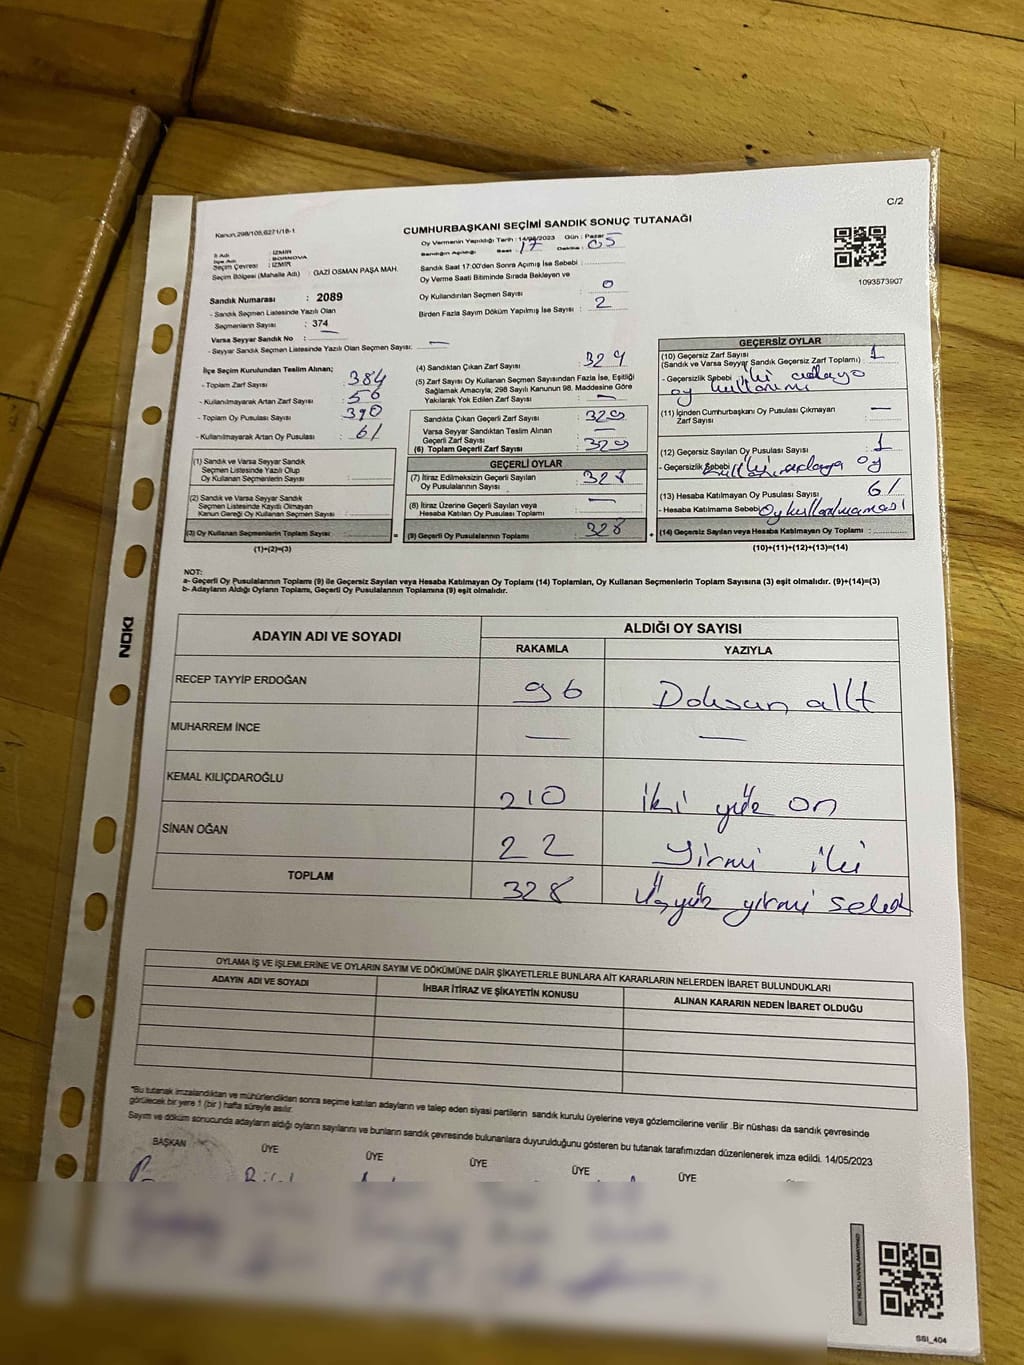 C/2
Kanun,298/105,6271/18-1
CUMHURBAŞKANI SEÇİMİ SANDIK SONUÇ TUTANAĞI
Oy Vermenin Yapıldığı Tarih : 14/05/2023 Gün : Pazar
Sandığın Açıldığı Saat : 17 Dakika : 05
İl Adı : İZMİR
İlçe Adı : BORNOVA
Seçim Çevresi : İZMİR
Seçim Bölgesi (Mahalle Adı) : GAZİ OSMAN PAŞA MAH.
1093573907
Sandık Saat 17:00'den Sonra Açımış İse Sebebi :
Oy Verme Saati Bitiminde Sırada Bekleyen ve
Oy Kullandırılan Seçmen Sayısı : 0
Birden Fazla Sayım Döküm Yapılmış İse Sayısı : 2
Sandık Numarası : 2089
- Sandık Seçmen Listesinde Yazılı Olan
Seçmenlerin Sayısı : 374
Varsa Seyyar Sandık No : —
- Seyyar Sandık Seçmen Listesinde Yazılı Olan Seçmen Sayısı: —
İlçe Seçim Kurulundan Teslim Alınan;
- Toplam Zarf Sayısı : 384
- Kullanılmayarak Artan Zarf Sayısı : 56
- Toplam Oy Pusulası Sayısı : 390
- Kullanılmayarak Artan Oy Pusulası : 61
(1) Sandık ve Varsa Seyyar Sandık
Seçmen Listesinde Yazılı Olup
Oy Kullanan Seçmenlerin Sayısı :
(2) Sandık ve Varsa Seyyar Sandık
Seçmen Listesinde Kayıtlı Olmayan
Kanun Gereği Oy Kullanan Seçmen Sayısı :
(3) Oy Kullanan Seçmenlerin Toplam Sayısı :
(1)+(2)=(3)
(4) Sandıktan Çıkan Zarf Sayısı : 329
(5) Zarf Sayısı Oy Kullanan Seçmen Sayısından Fazla İse, Eşitliği
Sağlamak Amacıyla, 298 Sayılı Kanunun 98. Maddesine Göre
Yakılarak Yok Edilen Zarf Sayısı : —
Sandıkta Çıkan Geçerli Zarf Sayısı : 329
Varsa Seyyar Sandıktan Teslim Alınan
Geçerli Zarf Sayısı : —
(6) Toplam Geçerli Zarf Sayısı : 329
GEÇERLİ OYLAR
(7) İtiraz Edilmeksizin Geçerli Sayılan
Oy Pusulalarının Sayısı : 328
(8) İtiraz Üzerine Geçerli Sayılan veya
Hesaba Katılan Oy Pusulası Toplamı : —
(9) Geçerli Oy Pusulalarının Toplamı : 328
GEÇERSİZ OYLAR
(10) Geçersiz Zarf Sayısı
(Sandık ve Varsa Seyyar Sandık Geçersiz Zarf Toplamı) : 1
- Geçersizlik Sebebi : iki adaya
oy kullanımı
(11) İçinden Cumhurbaşkanı Oy Pusulası Çıkmayan
Zarf Sayısı : —
(12) Geçersiz Sayılan Oy Pusulası Sayısı : 1
- Geçersizlik Sebebi iki adaya oy
(13) Hesaba Katılmayan Oy Pusulası Sayısı : 61
- Hesaba Katılmama Sebebi Oy kullanılmaması
(14) Geçersiz Sayılan veya Hesaba Katılmayan Oy Toplamı :
(10)+(11)+(12)+(13)=(14)
NOT:
a- Geçerli Oy Pusulalarının Toplamı (9) ile Geçersiz Sayılan veya Hesaba Katılmayan Oy Toplamı (14) Toplamları, Oy Kullanan Seçmenlerin Toplam Sayısına (3) eşit olmalıdır. (9)+(14)=(3)
b- Adayların Aldığı Oyların Toplamı, Geçerli Oy Pusulalarının Toplamına (9) eşit olmalıdır.
ADAYIN ADI VE SOYADI
ALDIĞI OY SAYISI
RAKAMLA YAZIYLA
RECEP TAYYİP ERDOĞAN 96 Doksan altı
MUHARREM İNCE — —
KEMAL KILIÇDAROĞLU 210 iki yüz on
SİNAN OĞAN 22 Yirmi iki
TOPLAM 328 Üçyüz yirmi sekiz
OYLAMA İŞ VE İŞLEMLERİNE VE OYLARIN SAYIM VE DÖKÜMÜNE DAİR ŞİKAYETLERLE BUNLARA AİT KARARLARIN NELERDEN İBARET BULUNDUKLARI
ADAYIN ADI VE SOYADI İHBAR İTİRAZ VE ŞİKAYETİN KONUSU ALINAN KARARIN NEDEN İBARET OLDUĞU
*Bu tutanak imzalandıktan ve mühürlendikten sonra seçime katılan adayların ve talep eden siyasi partilerin sandık kurulu üyelerine veya gözlemcilerine verilir .Bir nüshası da sandık çevresinde
görülecek bir yere 1 (bir ) hafta süreyle asılır.
Sayım ve döküm sonucunda adayların aldığı oyların sayılarını ve bunların sandık çevresinde bulunanlara duyurulduğunu gösteren bu tutanak tarafımızdan düzenlenerek imza edildi. 14/05/2023
BAŞKAN ÜYE ÜYE ÜYE ÜYE ÜYE
NOKI
SSI_404